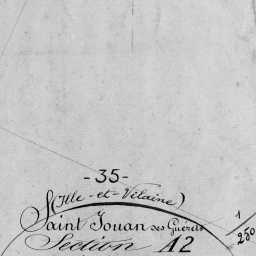 - 35 -
(Ille-et-Vilaine)
Saint Jouan des Guérets
Section A2
1
250